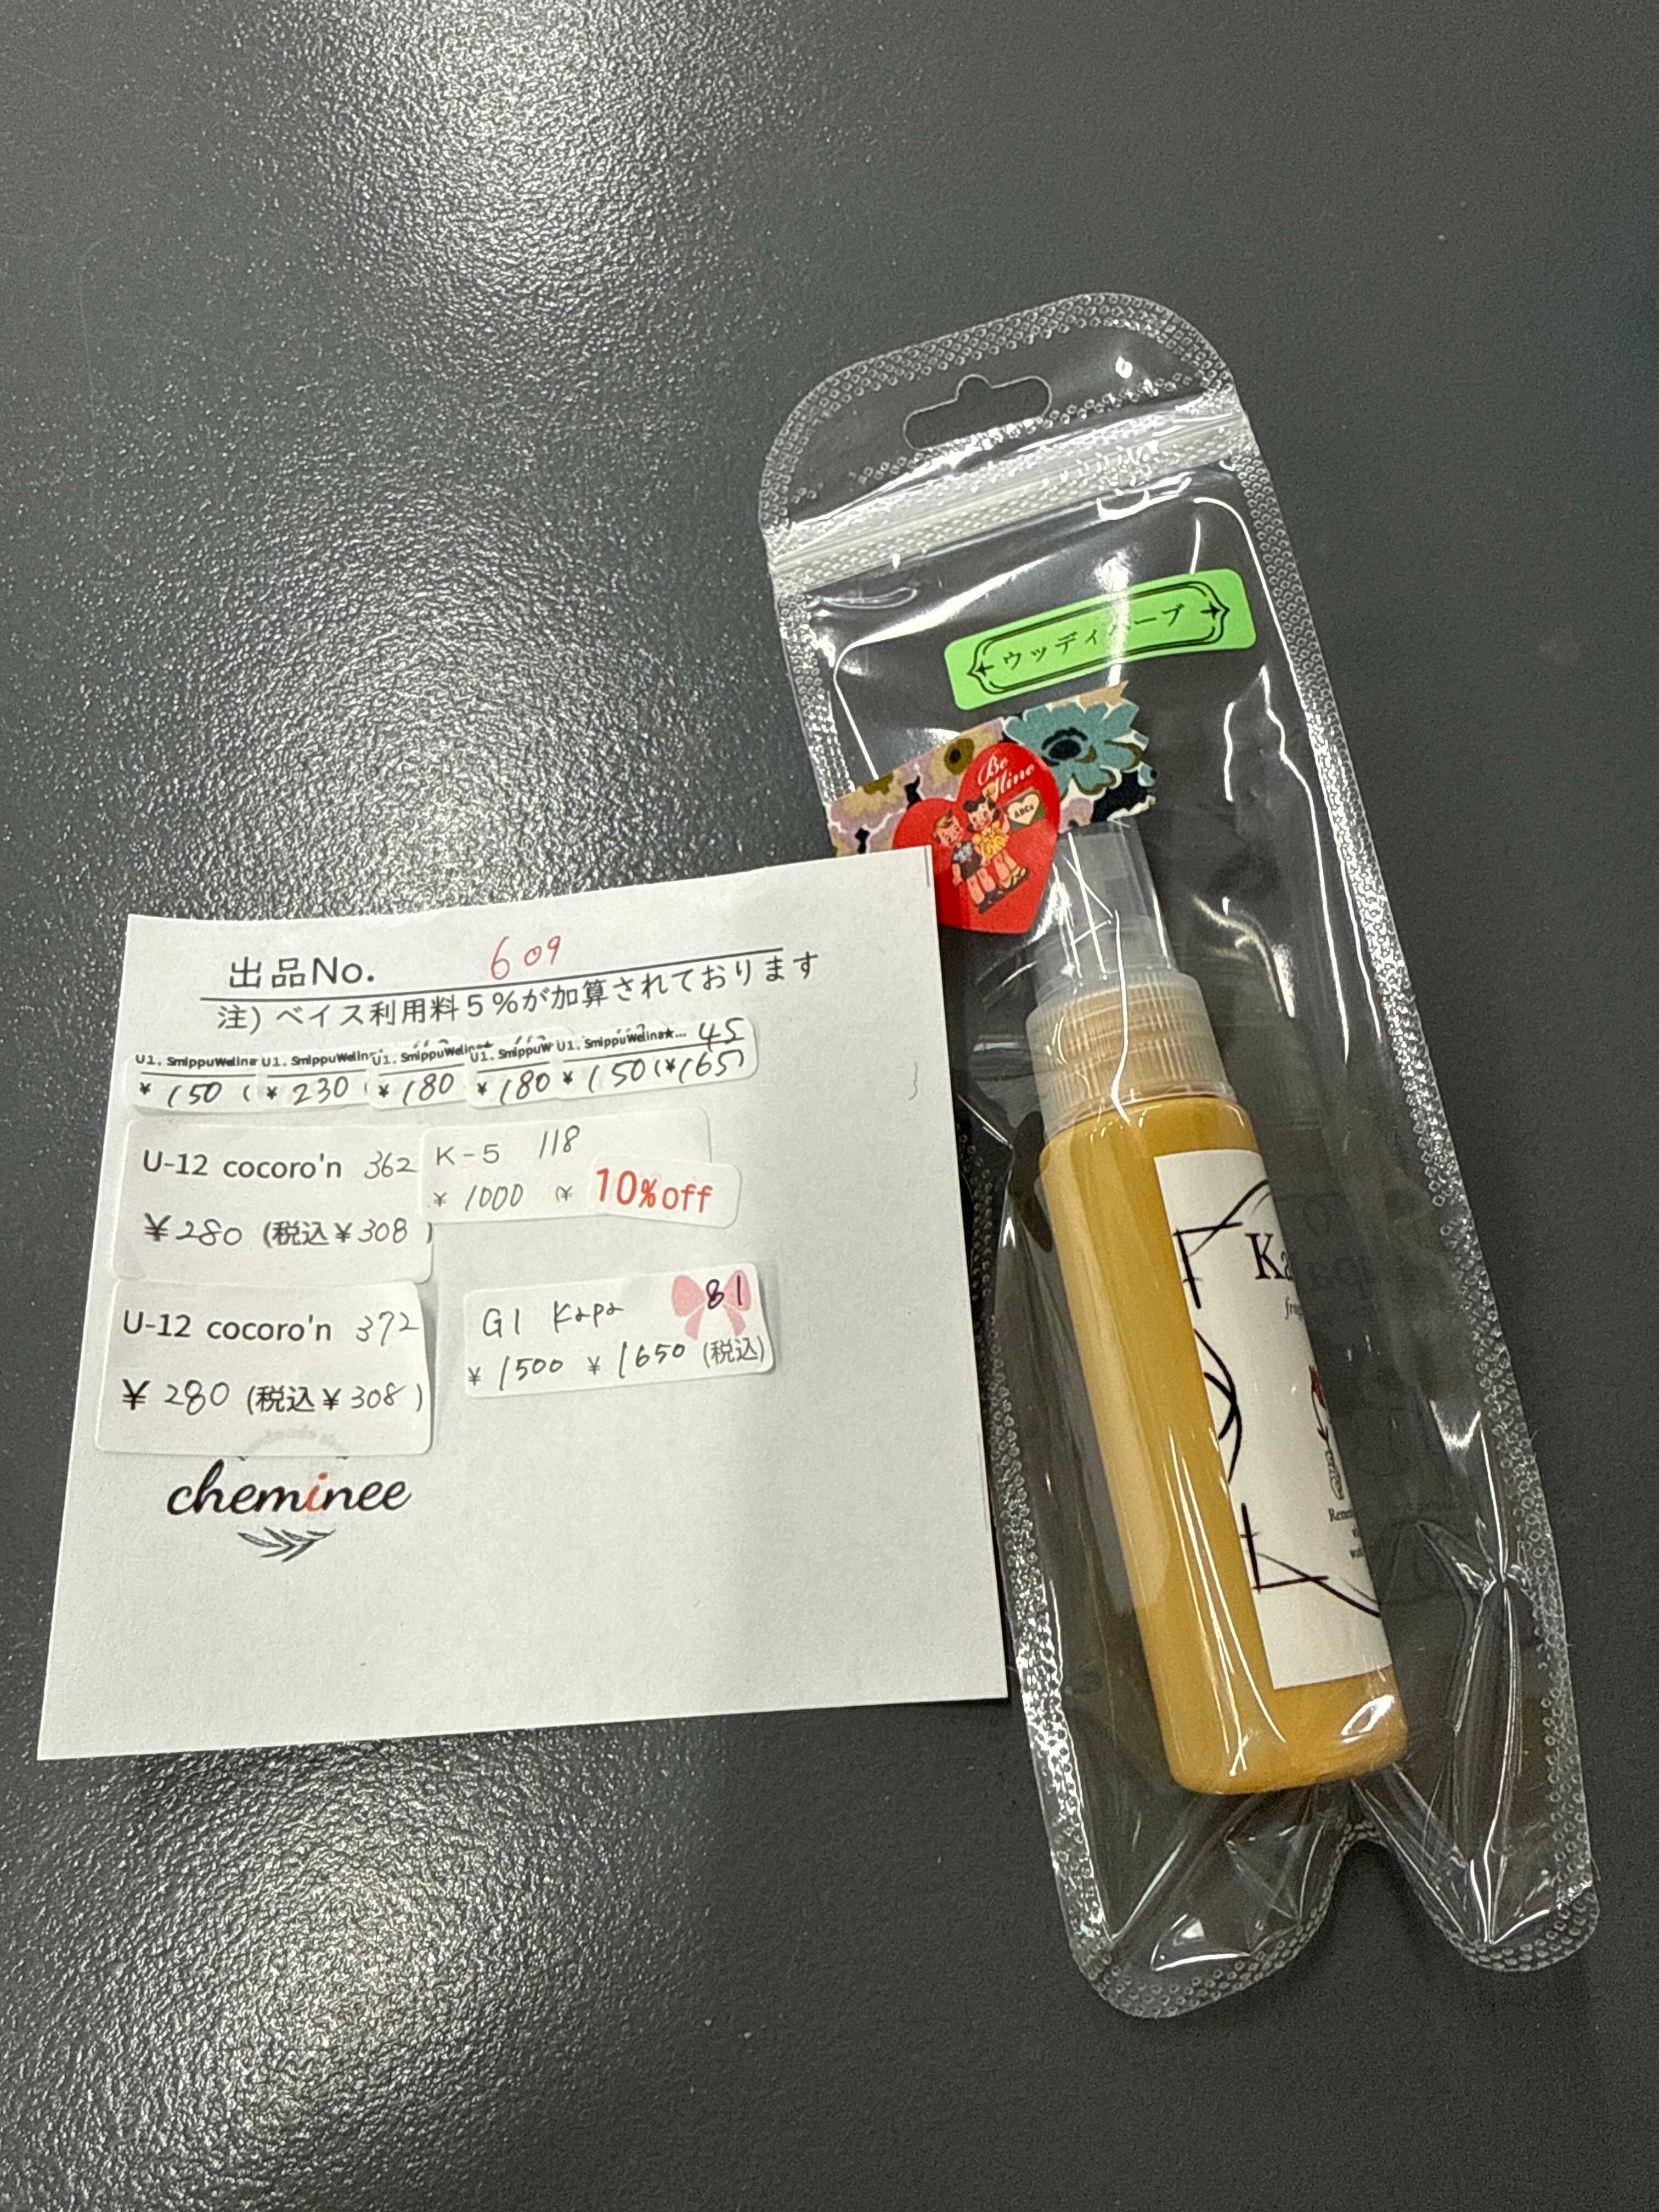 ウッディハーブ
Be
Mine
ABCs
出品No. 609
注) ベイス利用料5%が加算されております
U1. SmippuWelina U1. SmippuWelin U1. SmippuWelina U1. SmippuW U1. SmippuWelina★... 45
¥ 150 ( ¥ 230 ( ¥ 180 ¥ 180 ¥ 150 (¥165)
U-12 cocoro'n 362
¥280 (税込¥308)
K-5 118
¥ 1000 (¥ 10%off
U-12 cocoro'n 372
¥280 (税込¥308)
G1 Kapa 81
¥ 1500 ¥ 1650 (税込)
cheminee
Ka